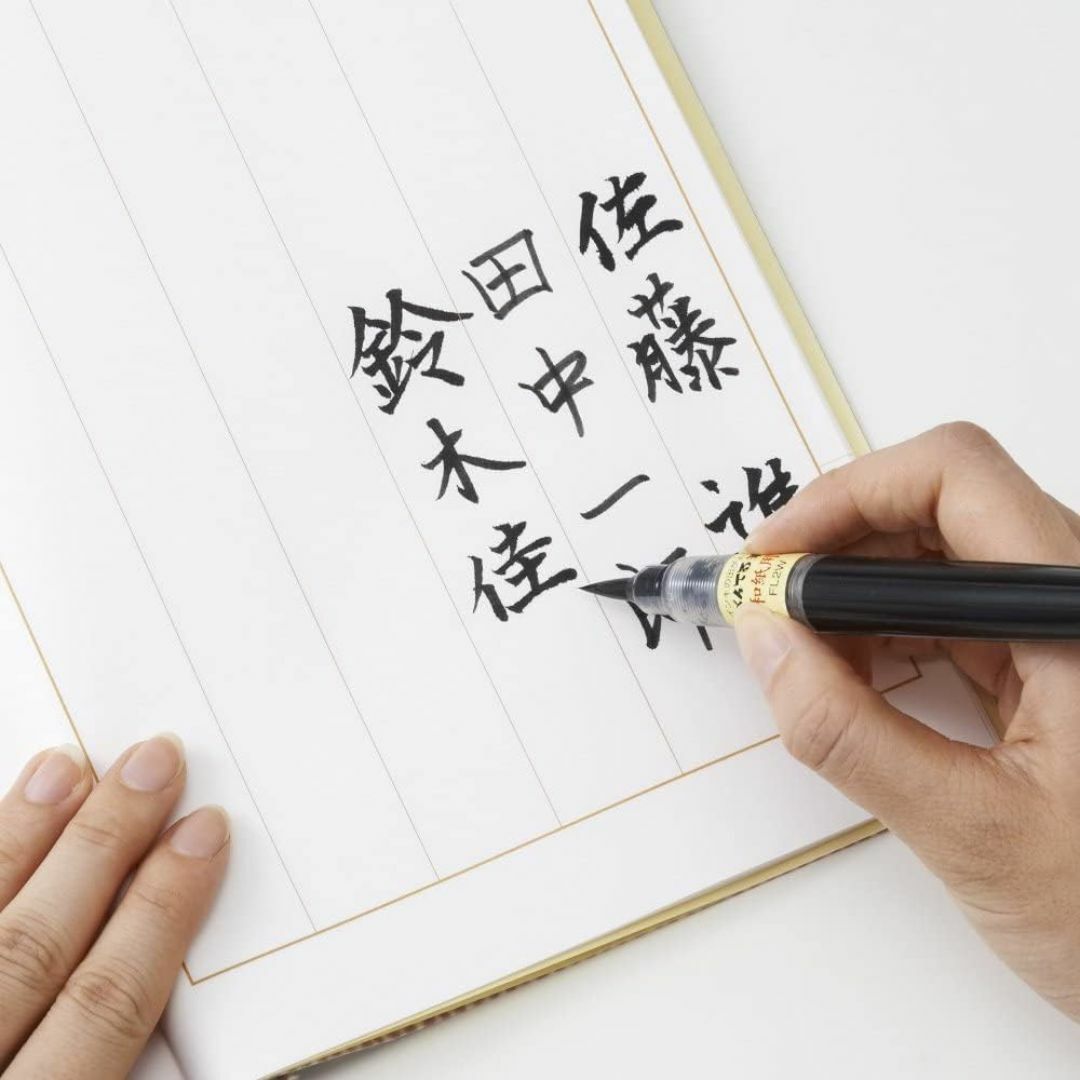 佐藤
田中一
鈴木佳
和紙用
FL2W